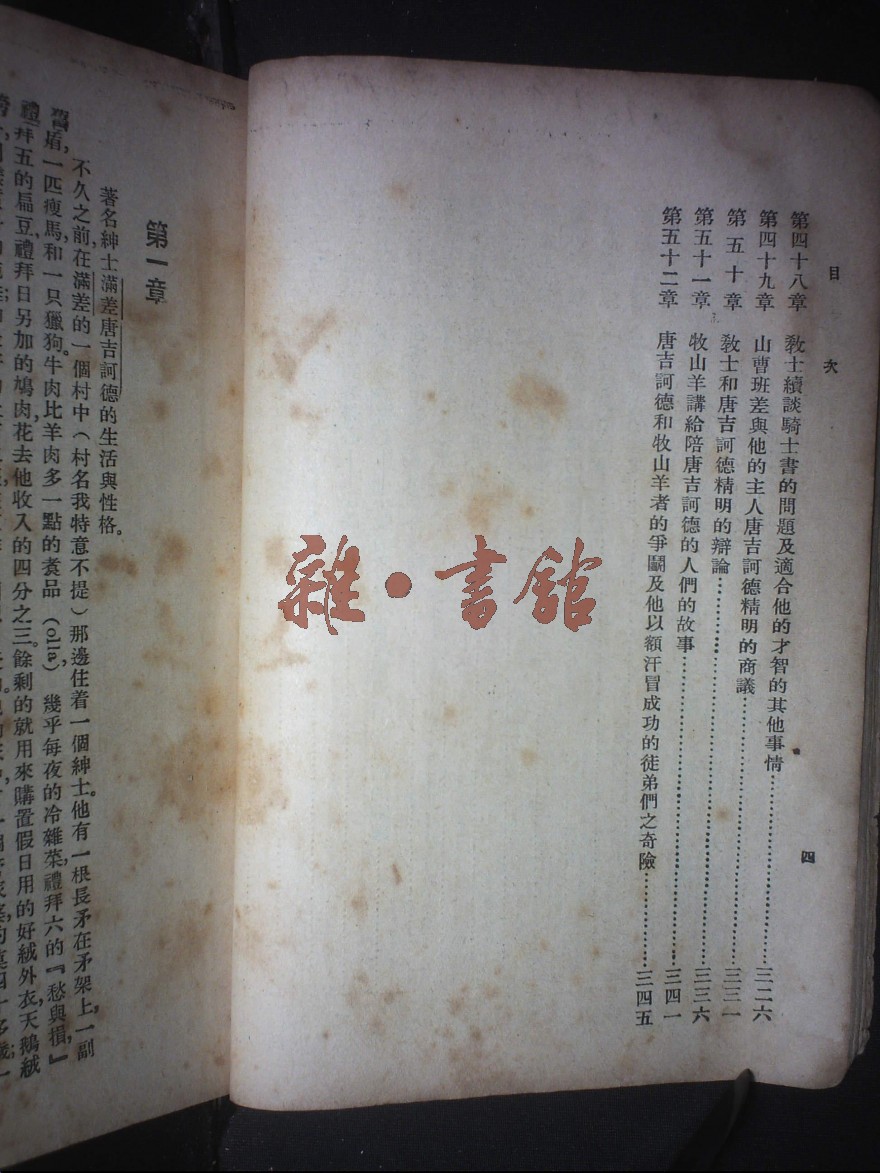 目次
第四十八章 教士續談騎士書的問題及適合他的才智的其他事情…………三二六
第四十九章 山曹班差與他的主人唐吉訶德精明的商議…………三三一
第五十章 教士和唐吉訶德精明的辯論…………三三六
第五十一章 牧山羊講給陪唐吉訶德的人們的故事…………三四一
第五十二章 唐吉訶德和牧山羊者的爭鬭及他以額汗冒成功的徒弟們之奇險…………三四五
四
雜·書館
第一章
著名紳士滿差唐吉訶德的生活與性格。
不久之前,在滿差的一個村中(村名我特意不提)那邊住着一個紳士,他有一根長矛在矛架上,一副
舊盾,一匹瘦馬,和一只獵狗。牛肉比羊肉多一點的煑品(olla)幾乎每夜的冷雜菜,禮拜六的『愁與損,』
禮拜五的扁豆,禮拜日另加的鳩肉,花去他收入的四分之三。餘剩的就用來購置假日用的好絨外衣,天鵝絨